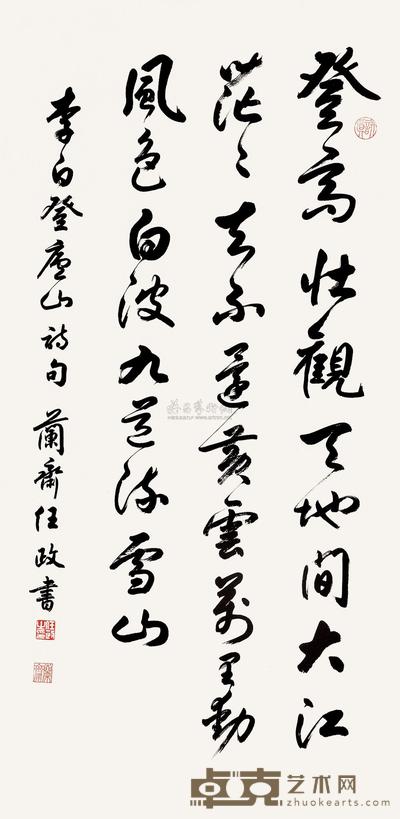 登高壯觀天地間大江
茫〻去不還黃雲萬里動
風色白波九道流雪山
李白登廬山詩句 蘭齋任政書
卓克艺术网
zhuokearts.com